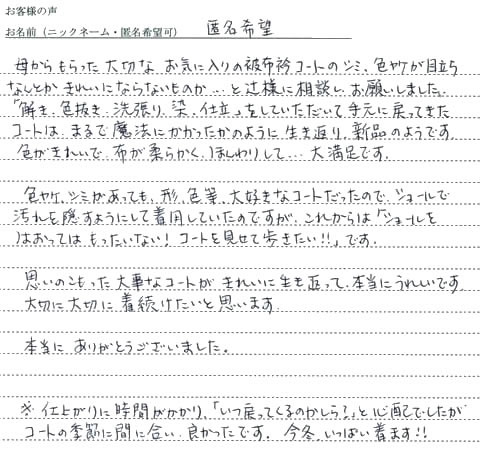 お客様の声
お名前（ニックネーム・匿名希望可） 匿名希望
母からもらった大切な お気に入りの被布衿コートのシミ、色ヤケが目立ち
なんとか きれいにならないものか…と辻様に相談し、お願いしました。
「解き、色抜き、洗張り、染、仕立」をしていただいて 手元に戻ってきた
コートは、まるで魔法にかかったかのように 生き返り、新品のようです。
色がきれいで、布が柔らかく、ほんわりして… 大満足です。
色ヤケ、シミがあっても、形、色等、大好きなコートだったので、ショールで
汚れを隠すようにして着用していたのですが、これからは「ショールを
はおっては もったいない！ コートを見せて歩きたい!!」です。
思いのこもった 大事なコートが きれいに生き返って、本当にうれしいです。
大切に大切に 着続けたいと思います。
本当に ありがとうございました。
※ 仕上がりに時間がかかり、「いつ戻ってくるのかしら？」と心配でしたが
コートの季節に間に合い、良かったです。 今冬、いっぱい着ます!!